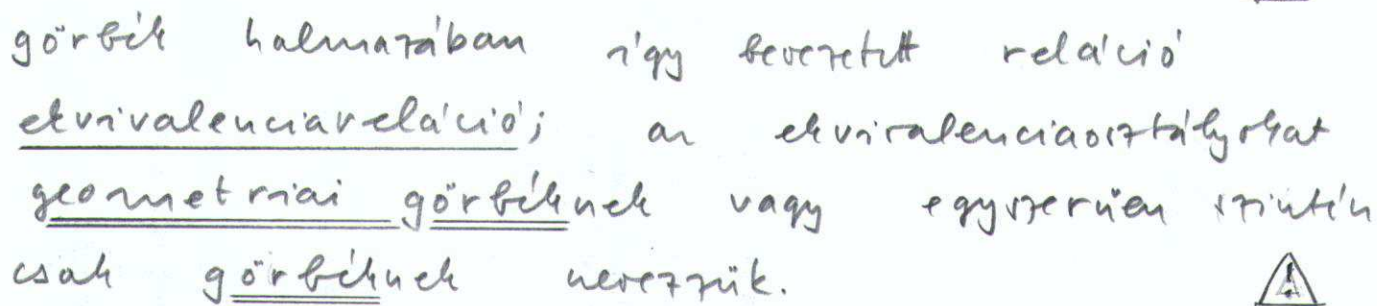 görbék halmazában így bevezetett reláció
ekvivalenciareláció; az ekvivalenciaosztályokat
geometriai görbéknek vagy egyszerűen szintén
csak görbéknek nevezzük.